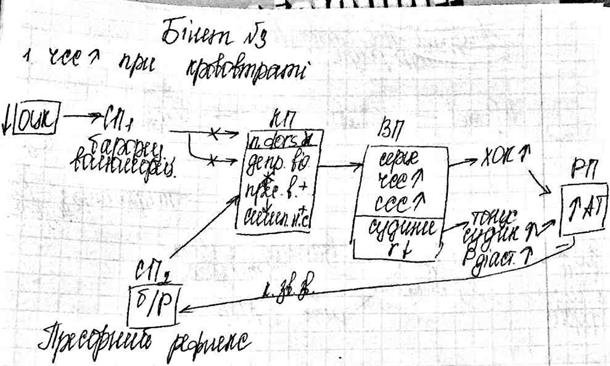 Білет №9
1 ЧСС↑ при крововтраті
↓ ОЦК → СП₁
барорец
волюморец.
КП
n. dors. X
депр. від
прес. в. +
симп н.с. +
ВП
серце
ЧСС↑
ССС↑
судини
r↓
ХОК↑
тонус
судин ↑
Рдіаст. ↑
РП
↑АТ
СП₂
б/Р
к. зв. зв.
Пресорний рефлекс